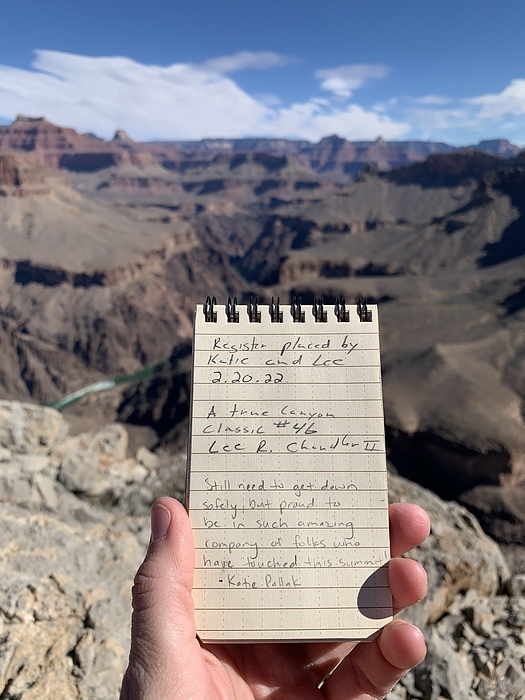 Register placed by
Katie and Lee
2.20.22
A true Canyon
Classic #46
Lee R. Chandler II
Still need to get down
safely, but proud to
be in such amazing
company of folks who
have touched this summit!
- Katie Pollak